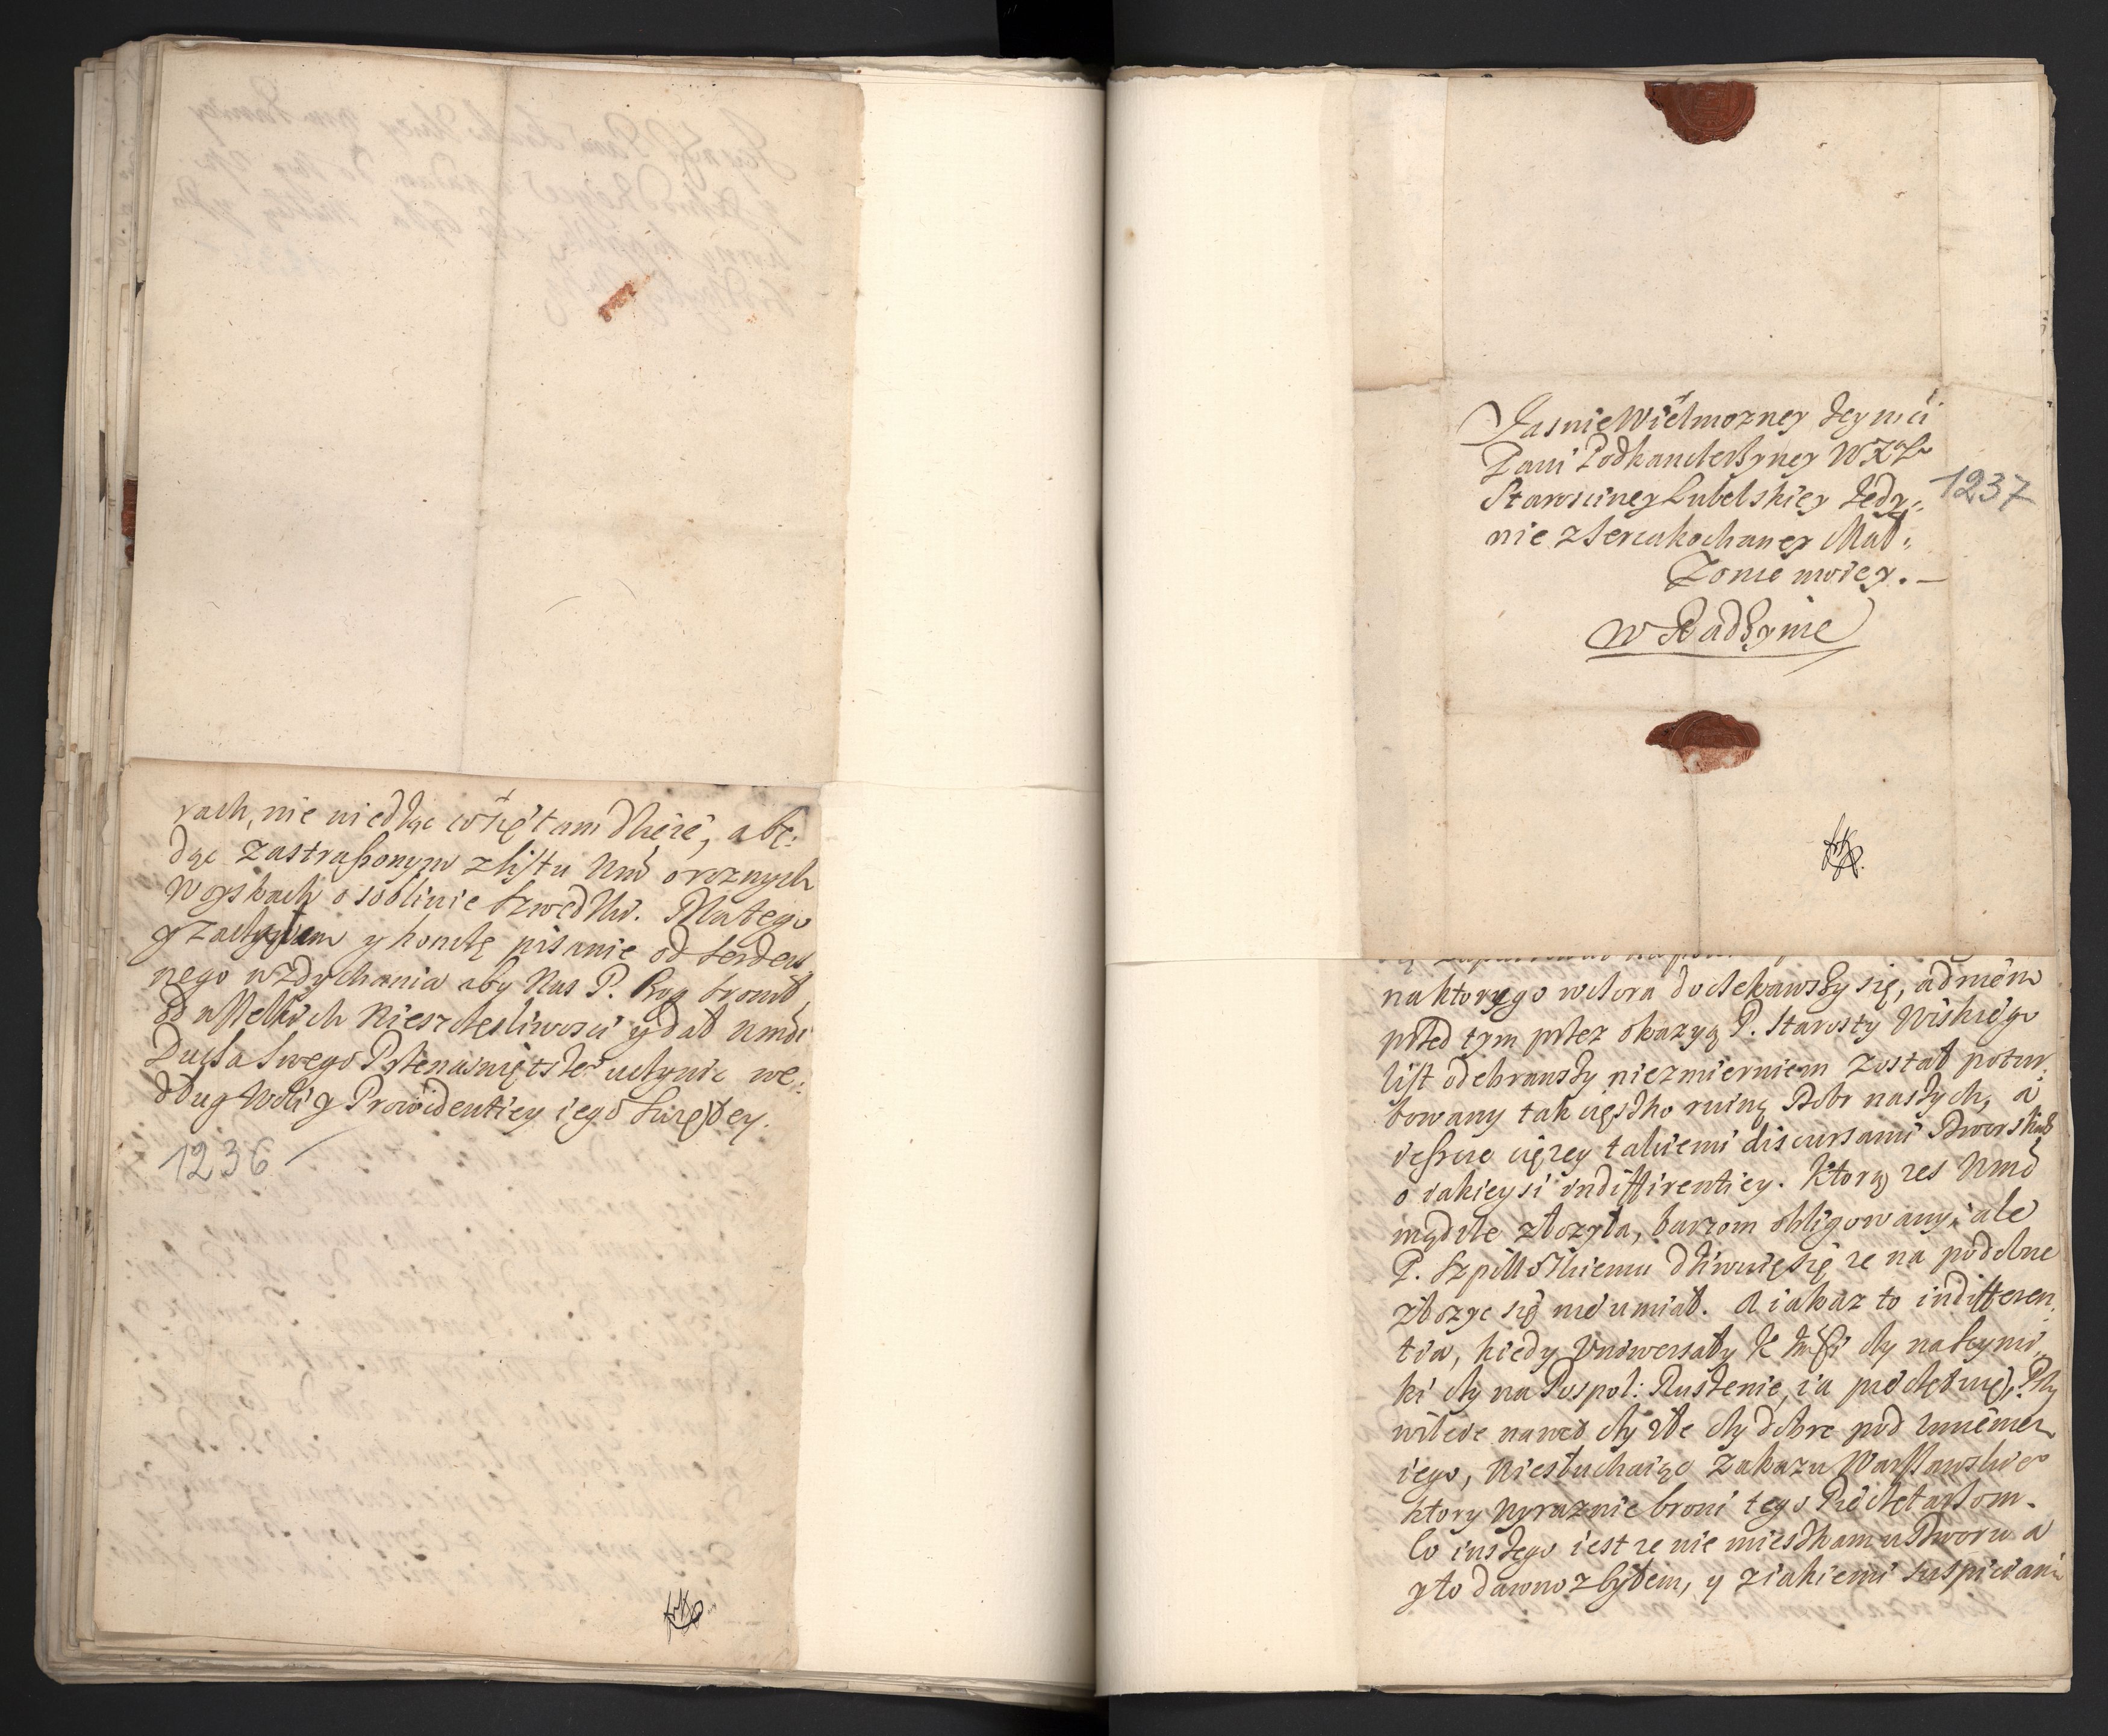 rach, nie wiedząc co się tam dzieie, a bę:
dąc zastraszonym z listu Wmć o roznych
Woyskach osobliwie Szwedzki. Dlatego
y zaczynam y konczę pisanie od serdecz
nego wzdychania aby Nas P. Bog bronił
od wszelkich Nieszczesliwosci y dał Wmści
Ducha Swego Przenaswiętszeo uczynic we:
dług woli y Prowidentiey iego Swiętey.
1236
Jasnie Wielmozney Jeymci
Pani Podkanclerzyney WXL
Starosciney Lubelskiey Jedy:
nie z serca kochaney Mał:
zonce moiey.
w Radzyniu
1237
na ktorego wczora doczekawszy się, a dniem
przed tym przez okazyą P. Starosty Wiskiego
list odebrawszy niezmierniem został potur
bowany tak cięszko ruiną Dobr naszych, a
ieszcze cięzey takiemi discursami Dworskich
o iakieysi indifferentiey. Ktorą zes Wmć
mądrze złozyła, barzom obligowany, ale
P. Szpilkoskiemu dziwuię się ze na podobne
złozyc się nie umiał. A iakaz to indifferen
tia, kiedy Universały K Jmści czy na Seymi
ki czy na Pospol: Ruszenie, ia pieczętuię, Przy
wileie nawet czy złe czy dobre pod Imieniem
iego, Niesłuchaiąc zakazu Warszawskieo
ktory wyraznie broni tego Pieczętarzom.
Co inszego iest ze nie mieszkam u Dworu a
y to dawno zbyłem, y z iakiemi suspiciami